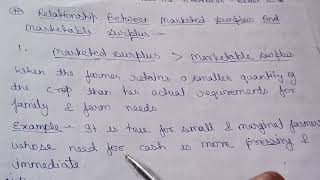 * Relationship Between Marketed Surplus And
Marketable Surplus —
1. Marketed Surplus > Marketable Surplus
When the farmer retains a smaller quantity of
the crop than his actual requirements for
family & farm needs
Example - It is true for small & marginal farmers
whose need for cash is more pressing &
immediate.